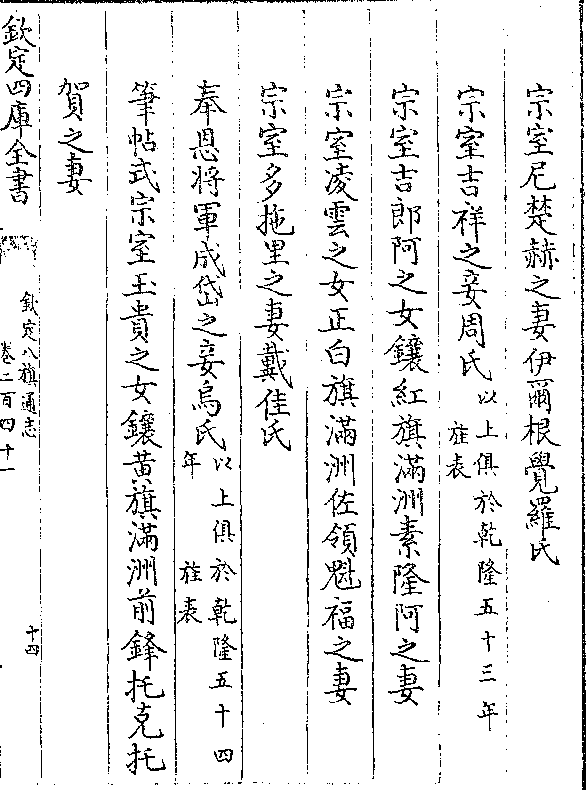 宗室尼楚赫之妻伊爾根覺羅氏
宗室吉祥之妾周氏以上俱於乾隆五十三年旌表
宗室吉郎阿之女鑲紅旗滿洲素隆阿之妻
宗室凌雲之女正白旗滿洲佐領魁福之妻
宗室多拖里之妻戴佳氏
奉恩將軍成岱之妾烏氏以上俱於乾隆五十四年旌表
筆帖式宗室玉貴之女鑲黃旗滿洲前鋒托克托
賀之妻
欽定四庫全書
欽定八旗通志
卷二百四十一
十四